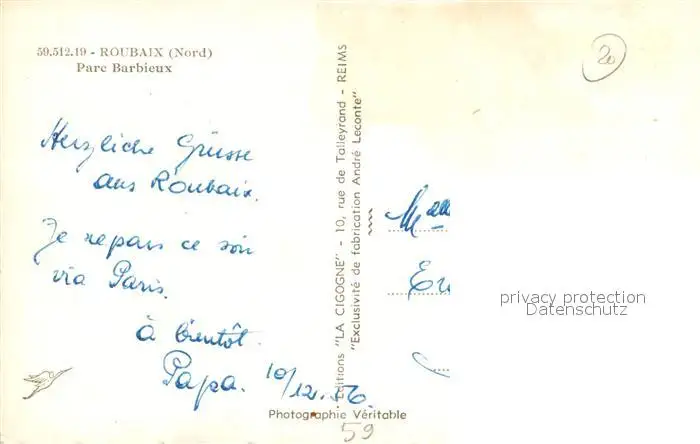 59.512.19 - ROUBAIX (Nord)
Parc Barbieux
Herzliche Grüsse
aus Roubaix.
Je repars ce soir
via Paris.
à bientôt.
Papa. 10/12.56.
Editions "LA CIGOGNE" - 10, rue de Talleyrand - REIMS
"Exclusivité de fabrication André Leconte"
Photographie Véritable
59
20
Melle
privacy protection
Datenschutz